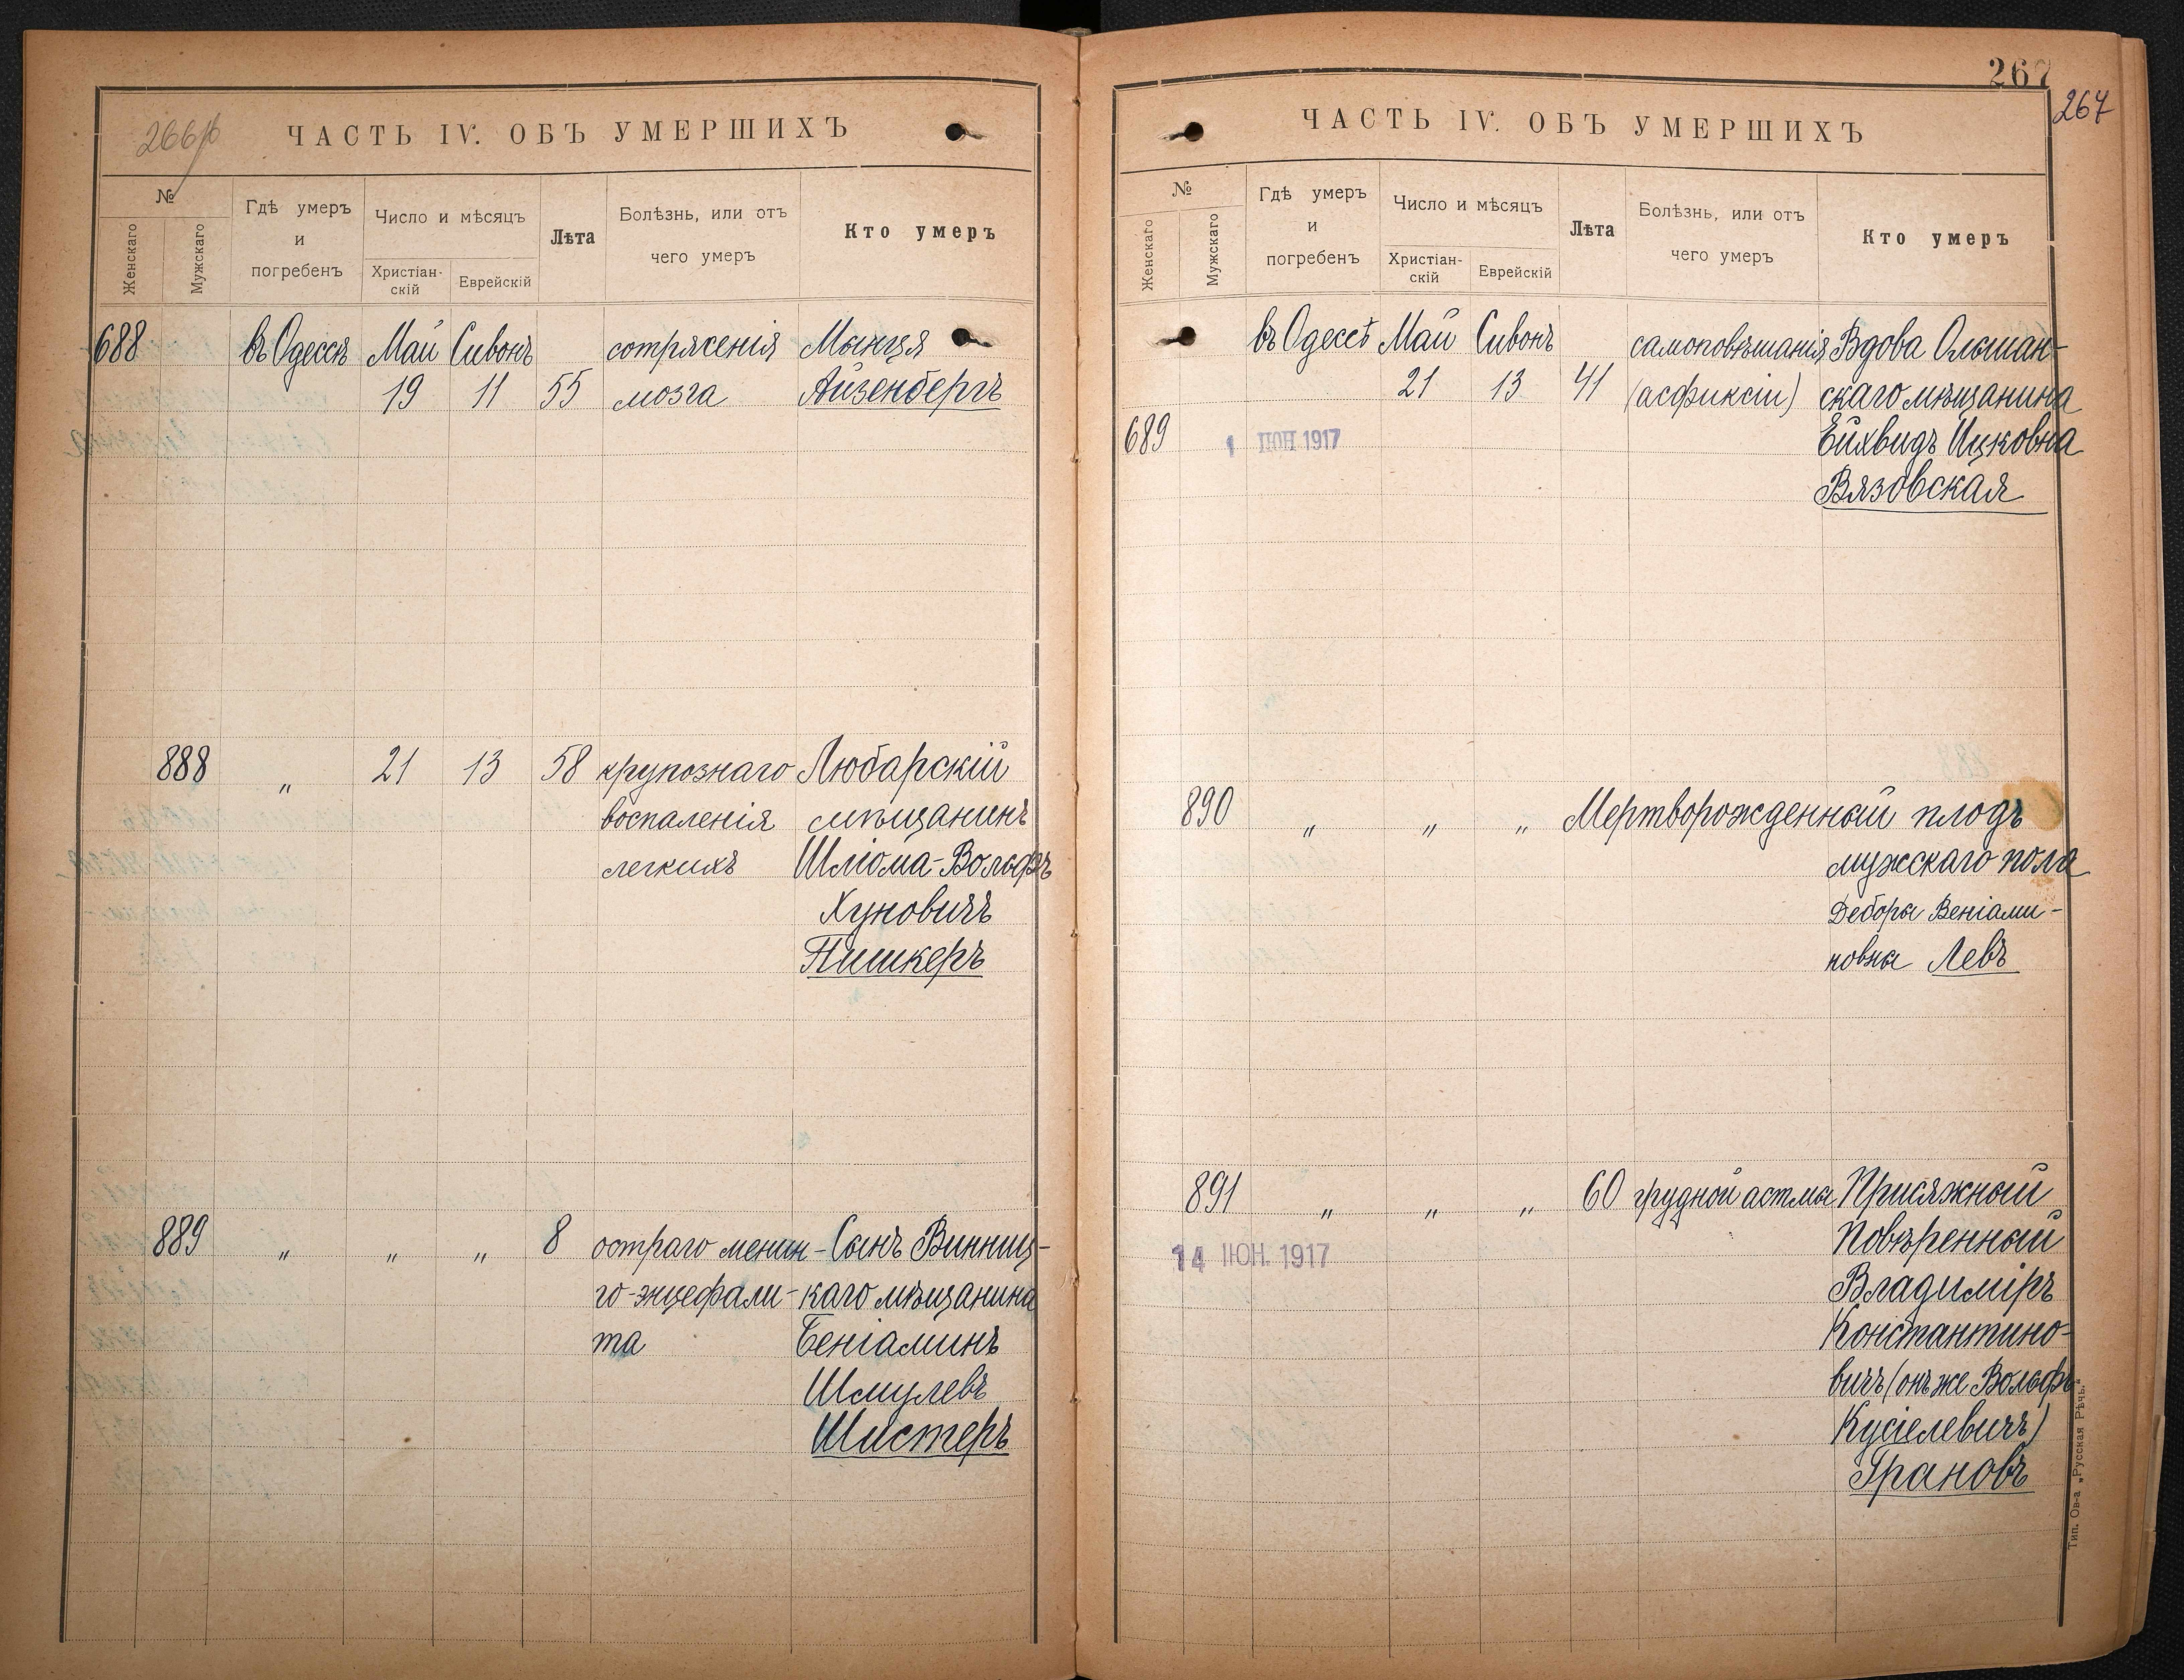 266 об
ЧАСТЬ IV. ОБЪ УМЕРШИХЪ
№
Женскаго
Мужскаго
Гдѣ умеръ
и
погребенъ
Число и мѣсяцъ
Христіан-
скій
Еврейскій
Лѣта
Болѣзнь, или отъ
чего умеръ
Кто умеръ
688 въ Одессѣ Май Сивонъ сотрясенія Мынця
19 11 55 мозга Айзенбергъ
888 " 21 13 58 крупознаго Любарскій
воспаленія мѣщанинъ
легкихъ Шліома-Вольфъ
Хуновичъ
Пишкеръ
889 " " " 8 остраго менин- Сынъ Винниц-
го-энцефали- каго мѣщанина
та Беніаминъ
Шмулевъ
Шистеръ
267
267
ЧАСТЬ IV. ОБЪ УМЕРШИХЪ
№
Женскаго
Мужскаго
Гдѣ умеръ
и
погребенъ
Число и мѣсяцъ
Христіан-
скій
Еврейскій
Лѣта
Болѣзнь, или отъ
чего умеръ
Кто умеръ
въ Одессѣ Май Сивонъ самоповѣшанія Вдова Ольшан-
21 13 41 (асфиксіи) скаго мѣщанина
689 1 ІЮН 1917 Ейхвидъ Ицковна
Вязовская
890 " " " Мертворожденный плодъ
мужскаго пола
Деборы Веніами-
новны Левъ
891 " " " 60 грудной астмы Присяжный
14 ІЮН. 1917 Повѣренный
Владиміръ
Константино-
вичъ (онъ же Вольфъ
Кусіелевичъ)
Грановъ
Тип. Ов-а „Русская Рѣчь."